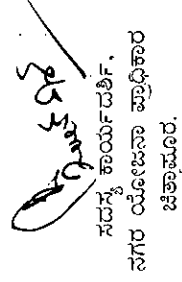 ಸದಸ್ಯ ಕಾರ್ಯದರ್ಶಿ,
ನಗರ ಯೋಜನಾ ಪ್ರಾಧಿಕಾರ
ಚಿತ್ತಾಪೂರ.